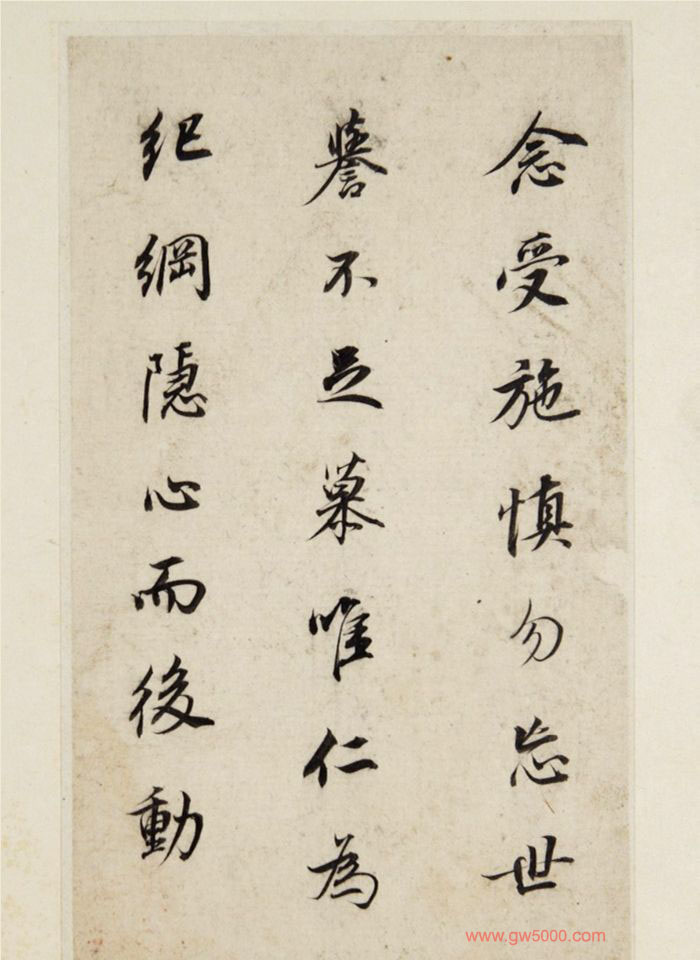 念受施慎勿忘世
譽不足慕唯仁為
紀綱隱心而後動
www.gw5000.com